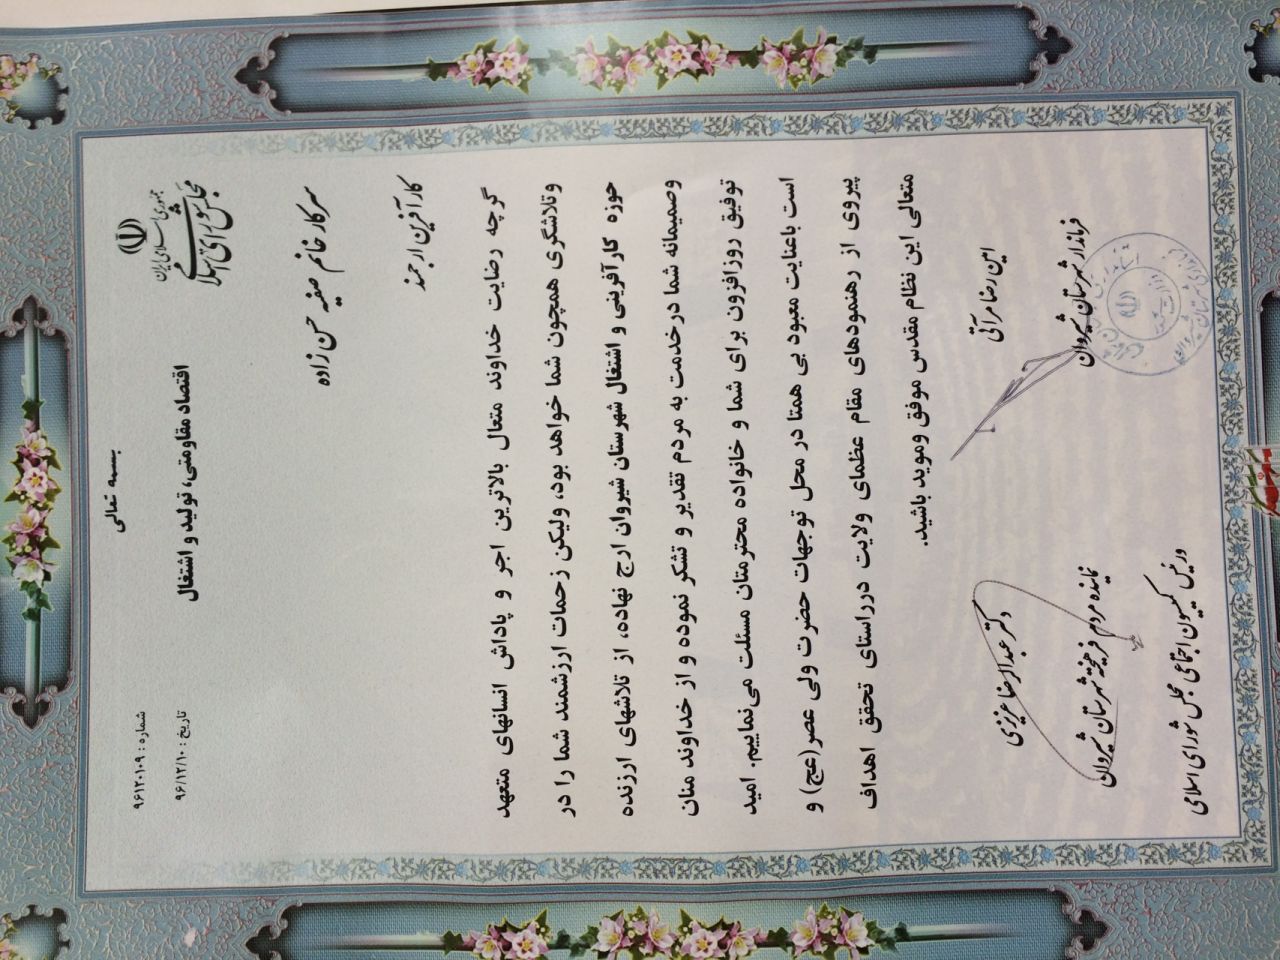 بسمه تعالی
جمهوری اسلامی ایران
مجلس شورای اسلامی
اقتصاد مقاومتی، تولید و اشتغال
شماره : ۹۶۱۲۰۱۰۹
تاریخ : ۹۶/۱۲/۱۰
سرکار خانم صفیه حسن زاده
کارآفرین ارجمند
گرچه رضایت خداوند متعال بالاترین اجر و پاداش انسانهای متعهد
وتلاشگری همچون شما خواهد بود، ولیکن زحمات ارزشمند شما را در
حوزه کارآفرینی و اشتغال شهرستان شیروان ارج نهاده، از تلاشهای ارزنده
وصمیمانه شما درخدمت به مردم تقدیر و تشکر نموده و از خداوند منان
توفیق روزافزون برای شما و خانواده محترمتان مسئلت می‌نماییم. امید
است باعنایت معبود بی همتا در محل توجهات حضرت ولی عصر(عج) و
پیروی از رهنمودهای مقام عظمای ولایت درراستای تحقق اهداف
متعالی این نظام مقدس موفق وموید باشید.
امین رضا مرآتی
فرماندار شهرستان شیروان
دکتر عبدالرضا عزیزی
نماینده مردم فرهیخته شهرستان شیروان
ورئیس کمیسیون اجتماعی مجلس شورای اسلامی